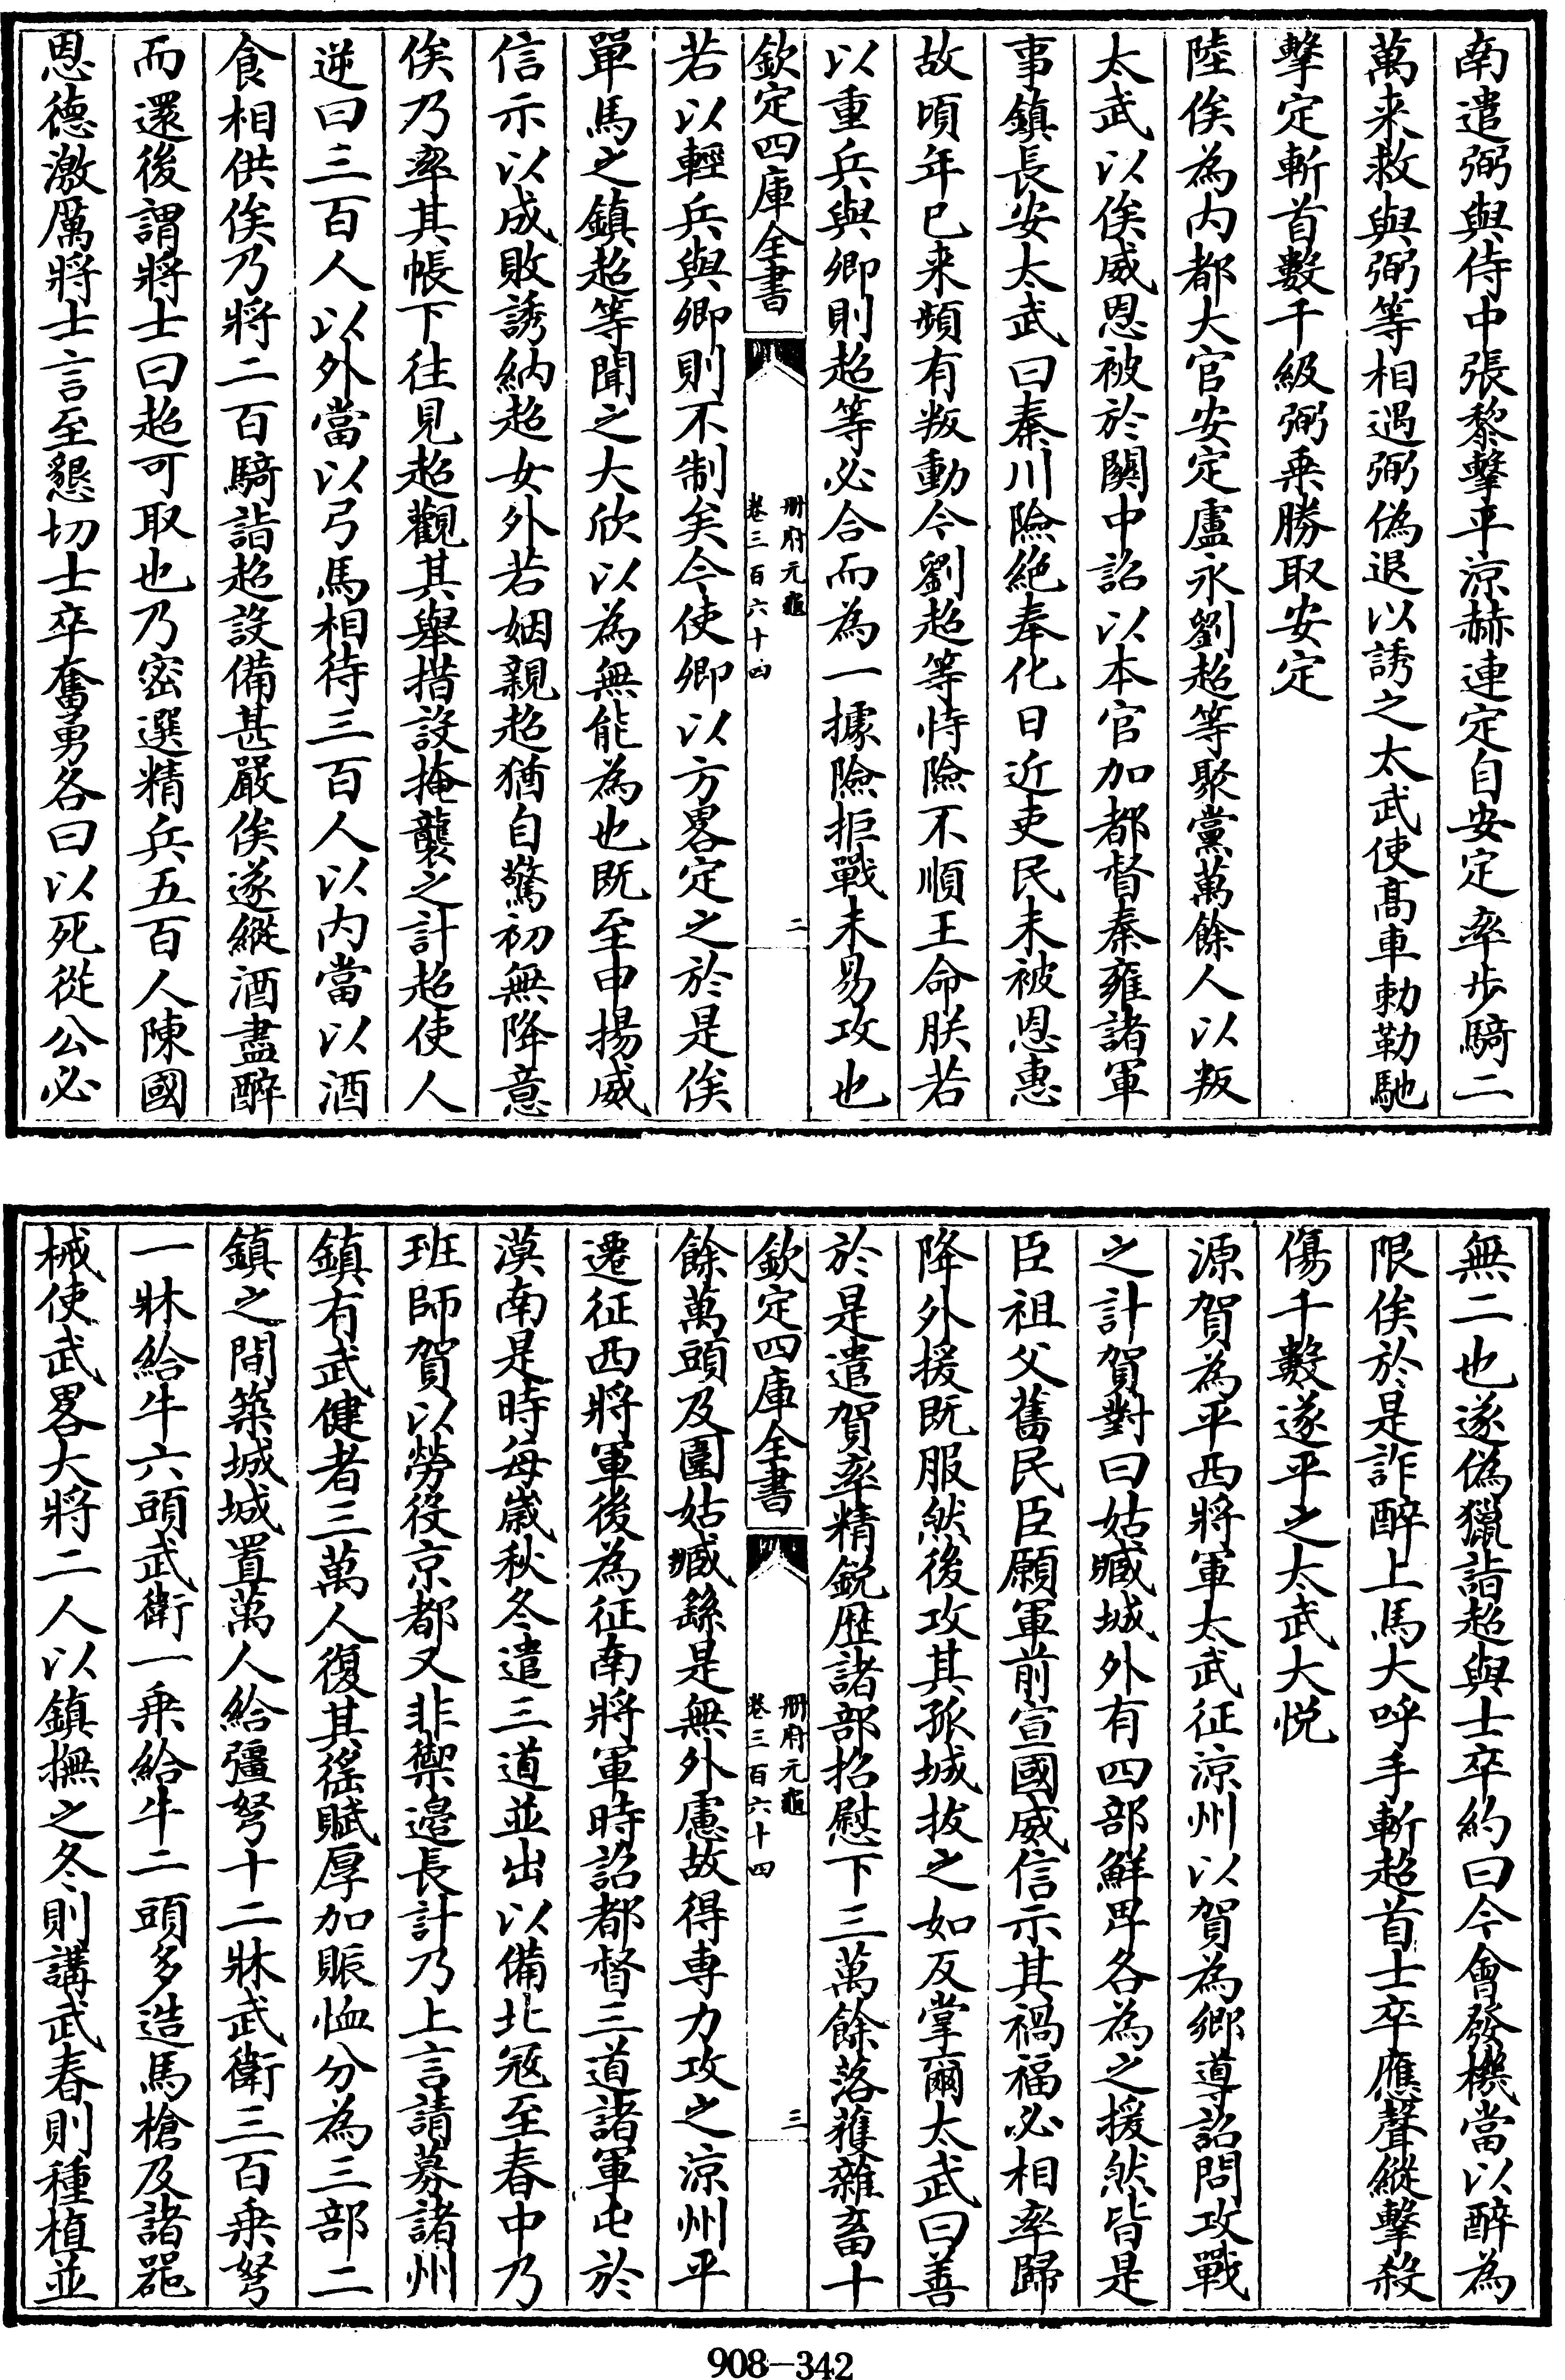 南遣弼與侍中張黎擊平涼赫連定自安定率步騎二
萬来救與弼等相遇弼偽退以誘之太武使髙車勅勒馳
擊定斬首數千級弼乗勝取安定
陸俟為内都大官安定盧永劉超等聚黨萬餘人以叛
太武以俟威恩被於闗中詔以本官加都督秦雍諸軍
事鎮長安太武曰秦川險絶奉化日近吏民未被恩惠
故頃年已来頻有叛動今劉超等恃險不順王命朕若
以重兵與卿則超等必合而為一據險拒戰未易攻也
欽定四庫全書
册府元龜
卷三百六十四
二
若以輕兵與卿則不制矣今使卿以方畧定之於是俟
單馬之鎮超等聞之大欣以為無能為也既至申揚威
信示以成敗誘納超女外若姻親超猶自驚初無降意
俟乃率其帳下往見超觀其舉措設掩襲之計超使人
逆曰三百人以外當以弓馬相待三百人以内當以酒
食相供俟乃將二百騎詣超設備甚嚴俟遂縱酒盡醉
而還後謂將士曰超可取也乃密選精兵五百人陳國
恩德激厲將士言至懇切士卒奮勇各曰以死從公必
無二也遂偽獵詣超與士卒約曰今會發機當以醉為
限俟於是詐醉上馬大呼手斬超首士卒應聲縱擊殺
傷千數遂平之太武大悦
源賀為平西將軍太武征涼州以賀為鄉導詔問攻戰
之計賀對曰姑臧城外有四部鮮卑各為之援然皆是
臣祖父舊民臣願軍前宣國威信示其禍福必相率歸
降外援既服然後攻其孤城拔之如反掌爾太武曰善
於是遣賀率精鋭歴諸部招慰下三萬餘落獲雜畜十
欽定四庫全書
册府元龜
卷三百六十四
三
餘萬頭及圍姑臧繇是無外慮故得専力攻之涼州平
遷征西將軍後為征南將軍時詔都督三道諸軍屯於
漠南是時每歲秋冬遣三道並出以備北冦至春中乃
班師賀以勞役京都又非禦邉長計乃上言請募諸州
鎮有武健者三萬人復其徭賦厚加賑恤分為三部二
鎮之間築城城置萬人給彊弩十二牀武衛三百乗弩
一牀給牛六頭武衛一乗給牛二頭多造馬槍及諸器
械使武畧大將二人以鎮撫之冬則講武春則種植並
908-342